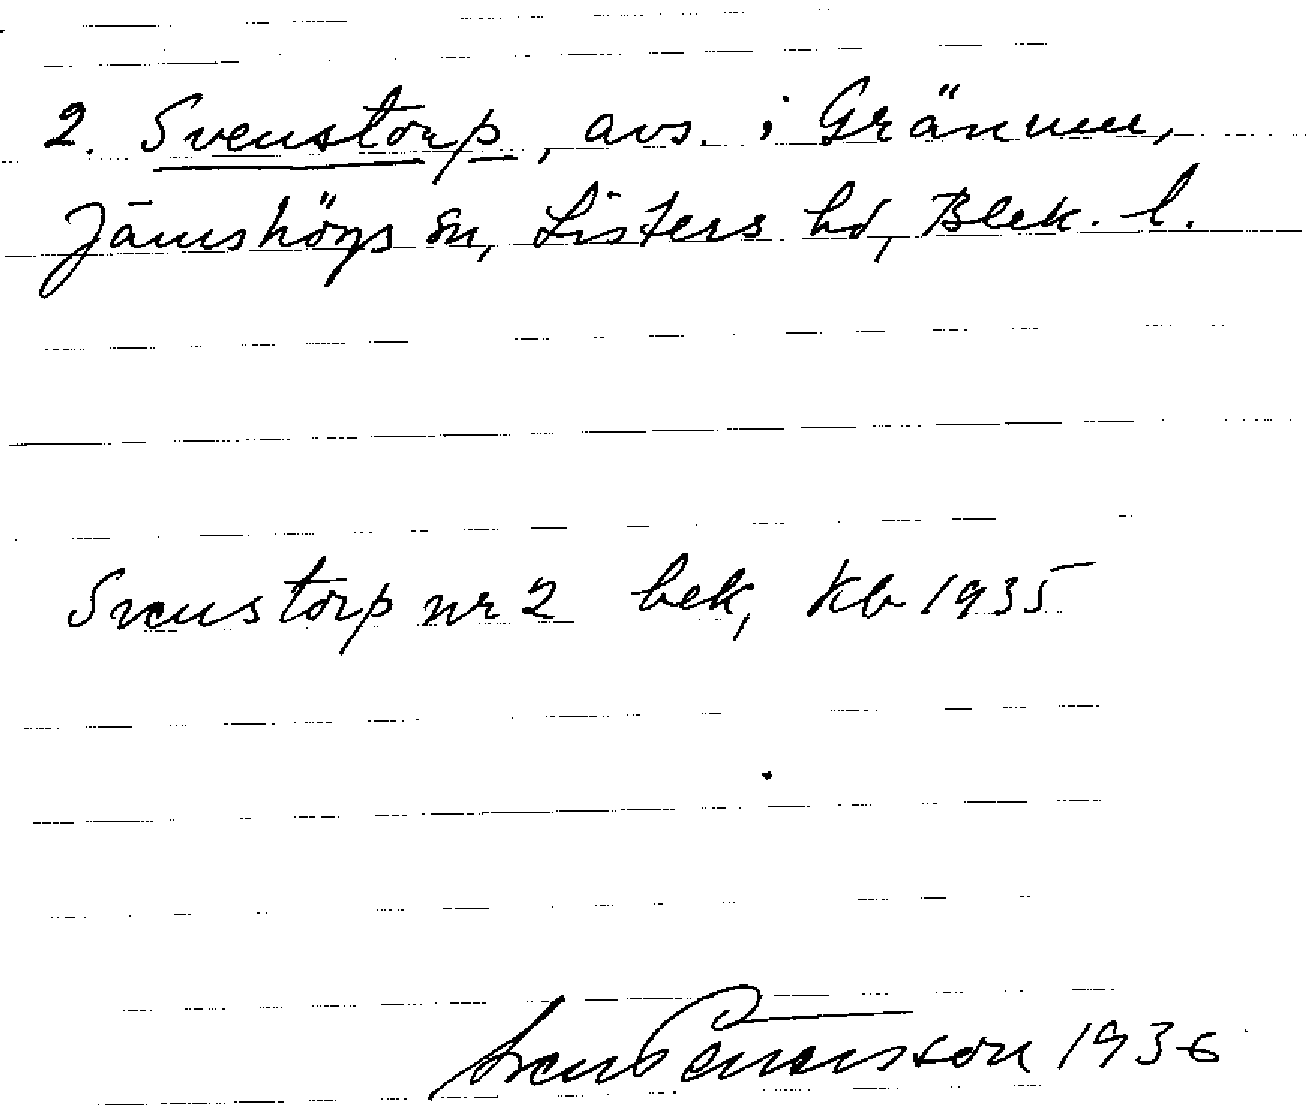 2. Svenstorp, avs. i Grännum,
Jämshögs sn, Listers hd, Blek. l.
Svenstorp nr 2 bek, Kb 1935
Sven Benson 1936